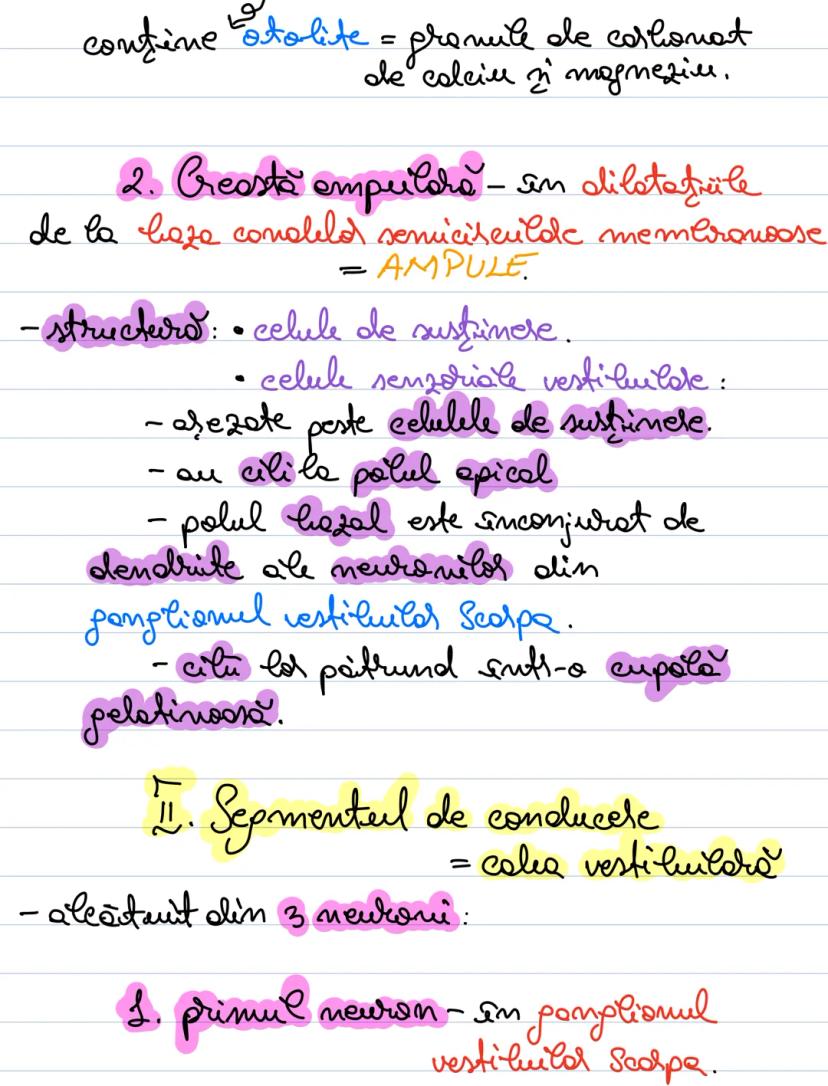 conține otolite = granule de carbonat
de calciu și magneziu.
2. Creastă ampulară - în dilatațiile
de la baza canalelor semicirculare membranoase
= AMPULE.
- structură: • celule de susținere.
• celule senzoriale vestibulare:
- așezate peste celulele de susținere.
- au cili la polul apical
- polul bazal este înconjurat de
dendrite ale neuronilor din
ganglionul vestibular Scarpa.
- cilii lor pătrund într-o cupolă
gelatinoasă.
II. Segmentul de conducere
= calea vestibulară
- alcătuit din 3 neuroni:
1. primul neuron - în ganglionul
vestibular Scarpa.